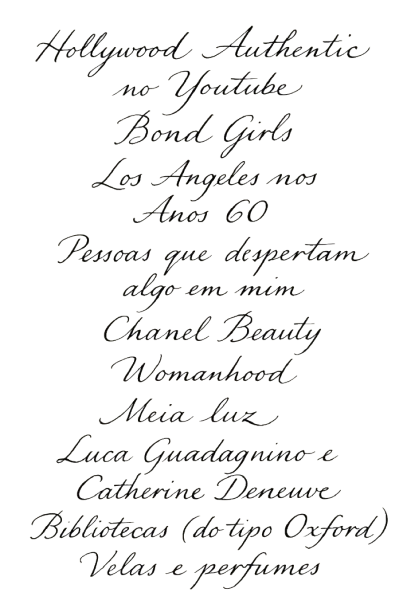 Hollywood Authentic
no Youtube
Bond Girls
Los Angeles nos
Anos 60
Pessoas que despertam
algo em mim
Chanel Beauty
Womanhood
Meia luz
Luca Guadagnino e
Catherine Deneuve
Bibliotecas (do tipo Oxford)
Velas e perfumes